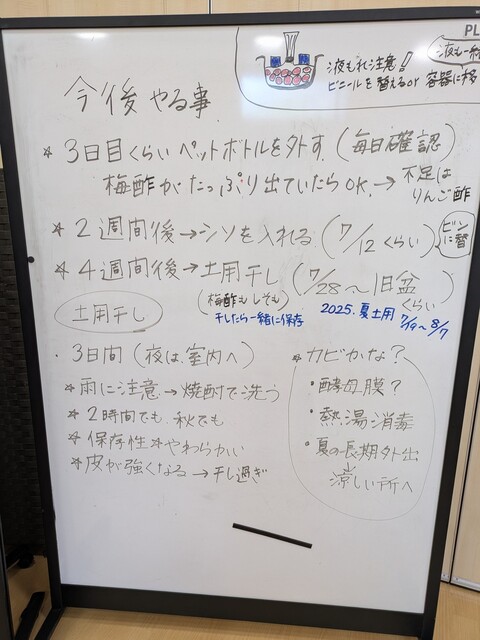 PL
液もれ注意!
液も一緒
ビニールを替えるor 容器に移
今後やる事
* 3日目くらい ペットボトルを外す (毎日確認)
梅酢がたっぷり出ていたらOK. → 不足は
りんご酢
* 2週間後→シソを入れる (7/12 くらい)
ビンに替
* 4週間後→土用干し (7/28〜旧盆)
くらい
(梅酢も しそも)
干したら一緒に保存
2025.夏土用
7/19〜8/7
土用干し
・3日間 (夜は室内へ)
* 雨に注意 → 焼酎で洗う
* 2時間でも 秋でも
* 保存性*やわらかい
* 皮が強くなる → 干し過ぎ
* カビかな?
・酵母膜?
・熱湯消毒
・夏の長期外出
涼しい所へ